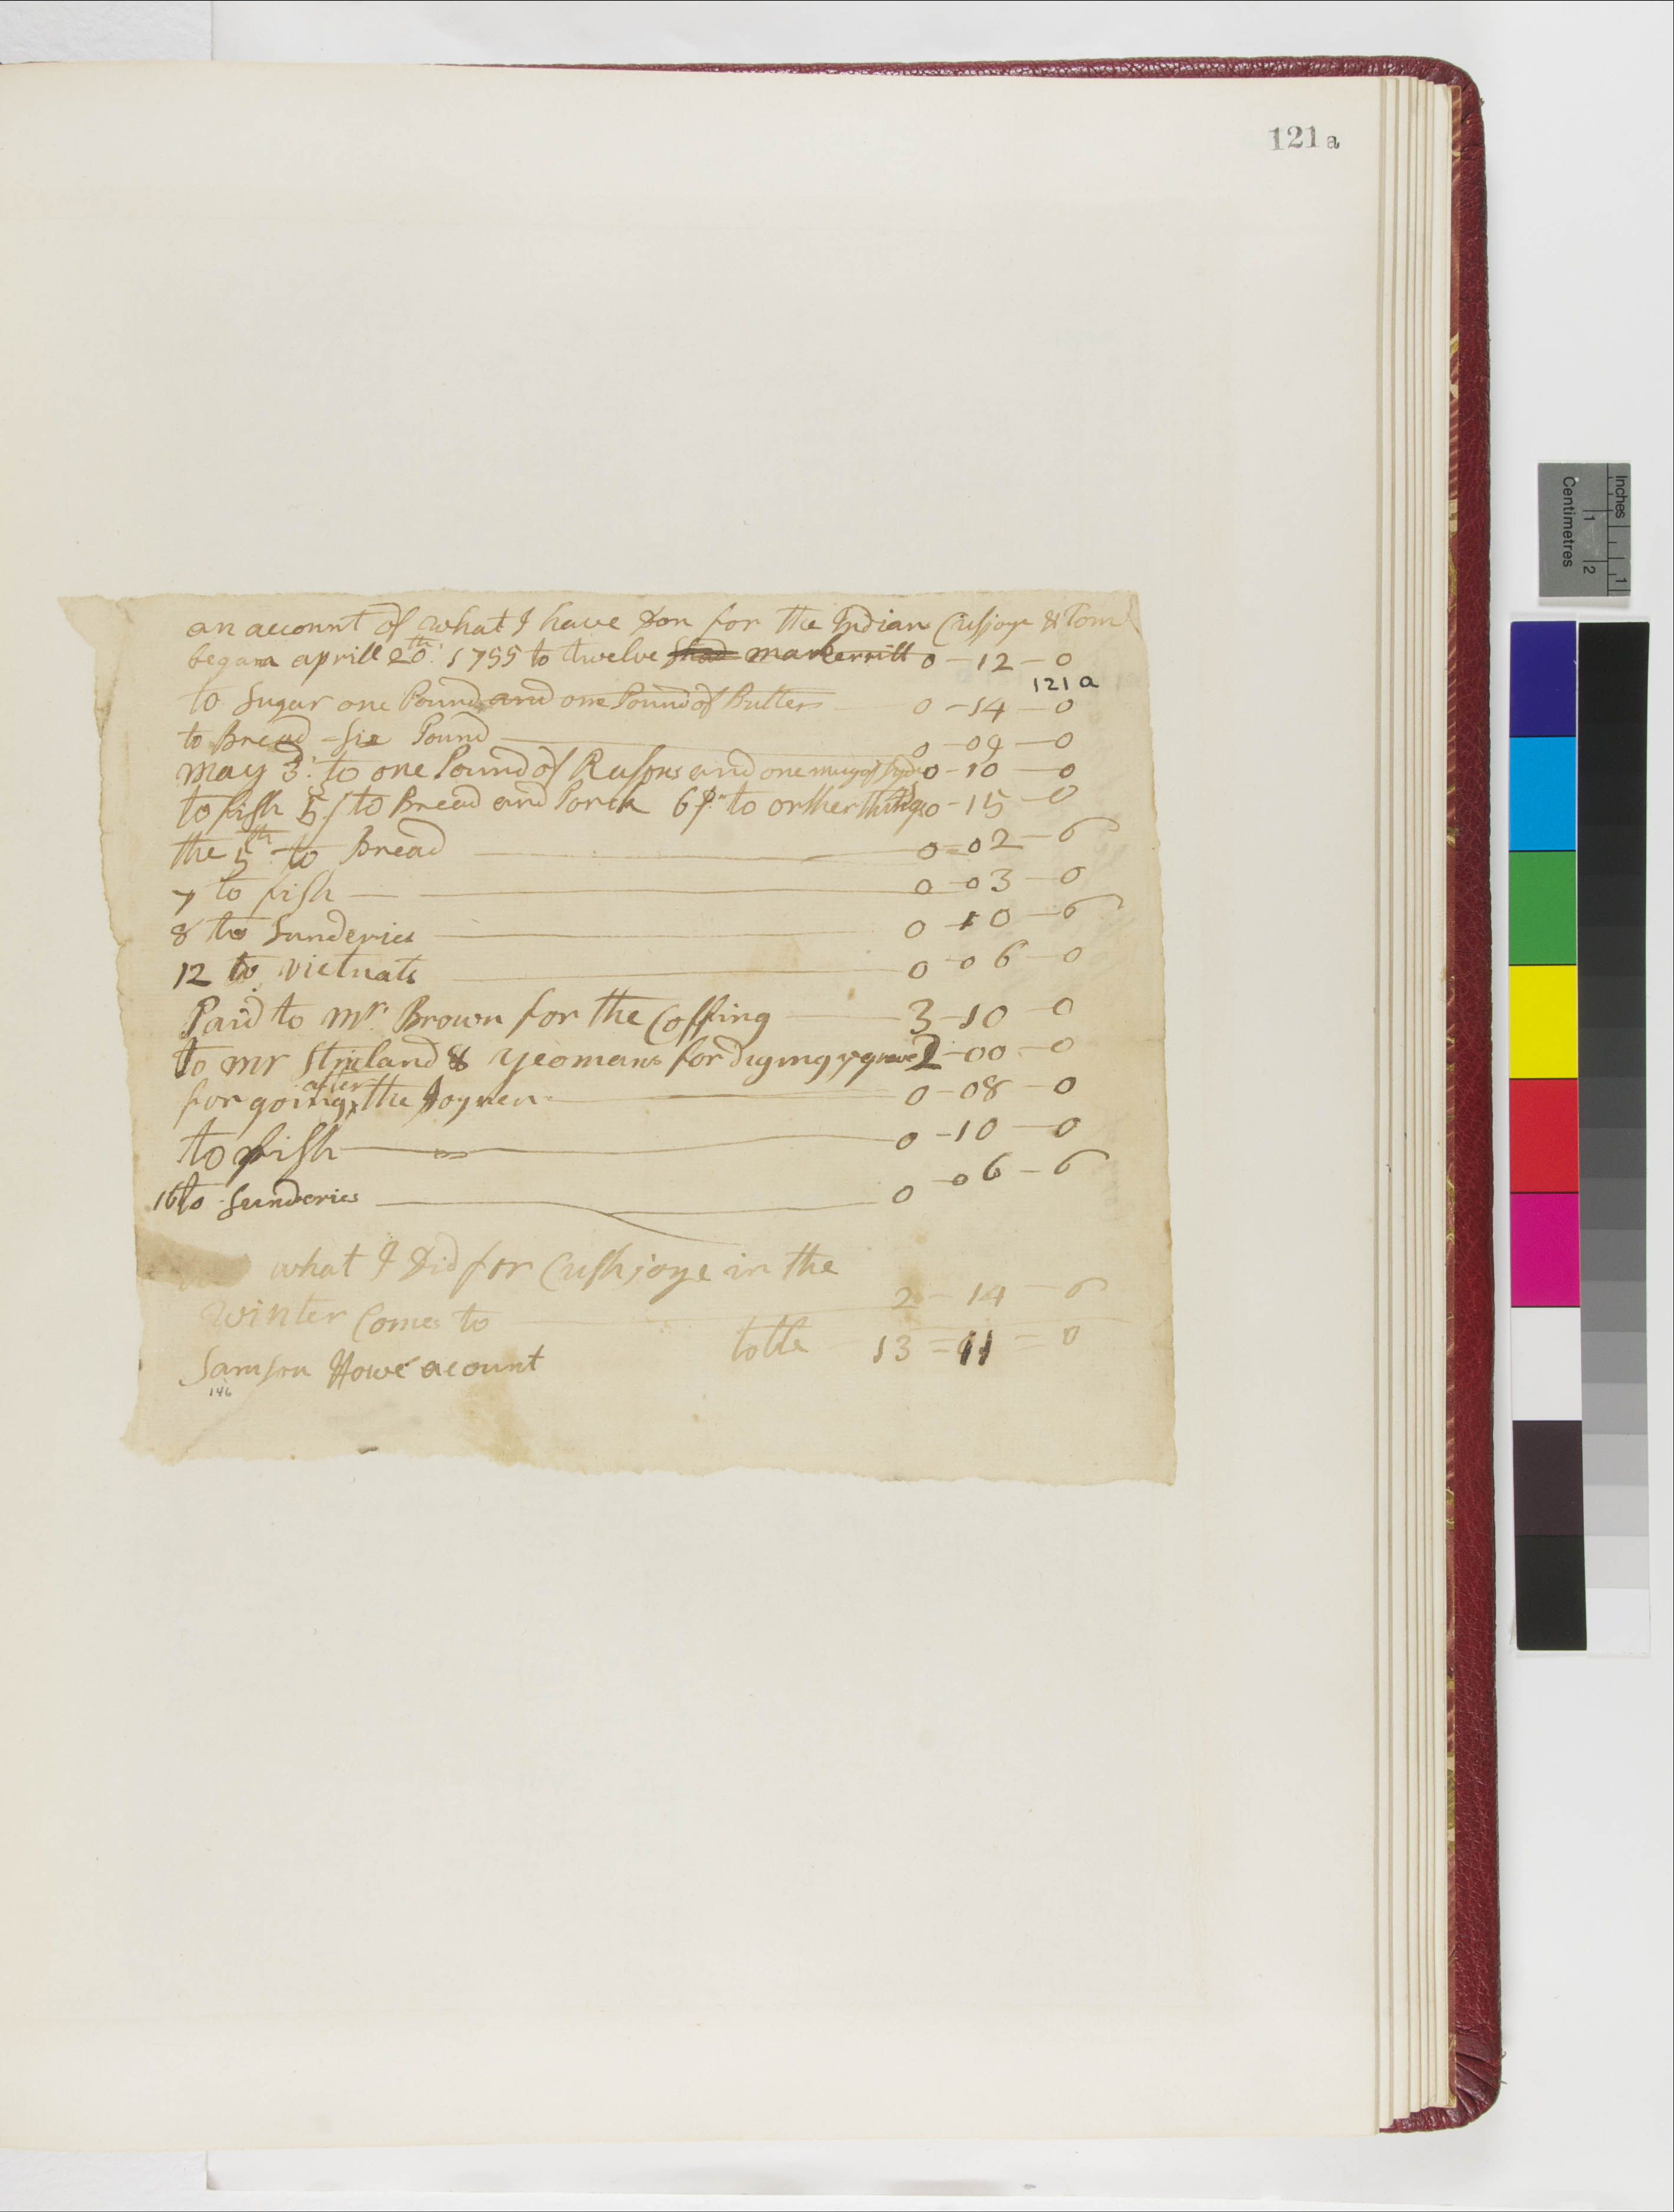 121a
an account of what I have Don for the Indian Cushjoye & Tom
began aprill 20th 1755 to twelve shad markerrill 0-12-0
121a
to Sugar one Pound and one Pound of Butter 0-14-0
to Bread - six Pound 0-09-0
may 3: to one Pound of Rasons and one mug of Syder 0-10-0
to fish 5/ to Bread and Porck 6/ to orther things 0-15-0
the 5th to Bread 0-02-6
7 to fish 0-03-0
8 to Sunderies 0-10-6
12 to victuals 0-06-0
Paid to Mr. Brown for the Coffing 3-10-0
to mr Stricland & yeomans for diging ye grave 2-00-0
for going after the Joyner 0-08-0
to fish 0-10-0
16 to Sunderies 0-06-6
what I Did for Cushjoye in the
winter Comes to 2-14-6
totle 13=11=0
Samson Howe acount
146
Inches 1
Centimetres 1 2